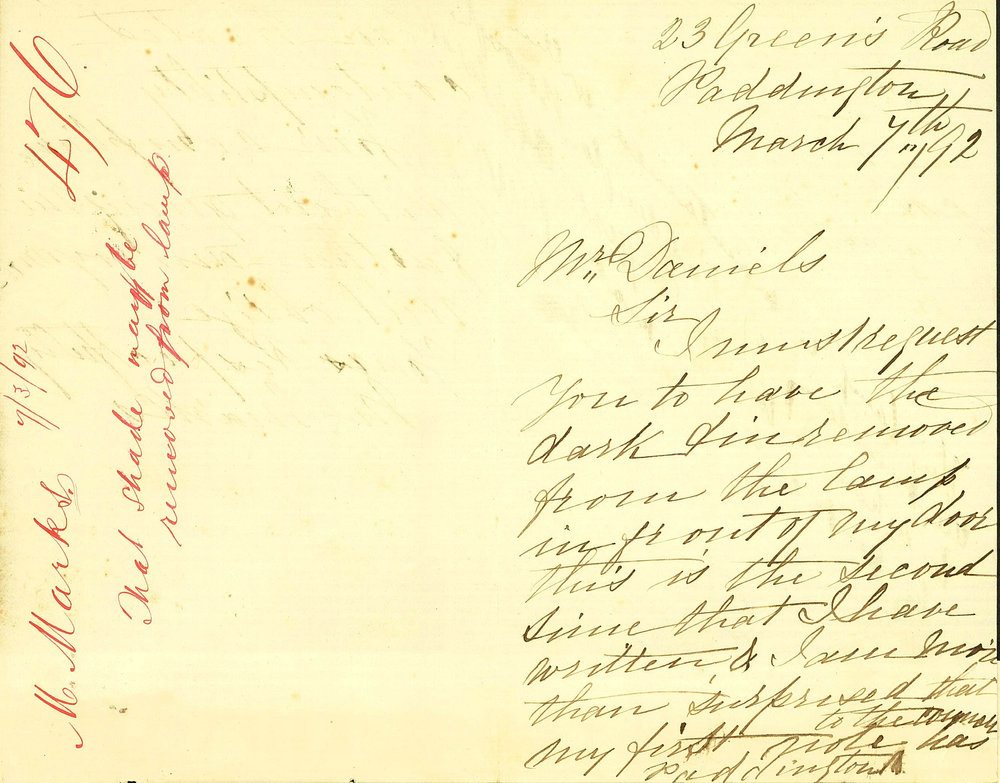 M. Marks 7/3/92 476
That shade may be
removed from lamp
23 Green's Road
Paddington
March 7th/92
Mr. Daniels
Sir
I must request
you to have the
dark tin removed
from the lamp
in front of my door
this is the second
time that I have
written, & I am more
than surprised that
my first note has
to the council
Paddington